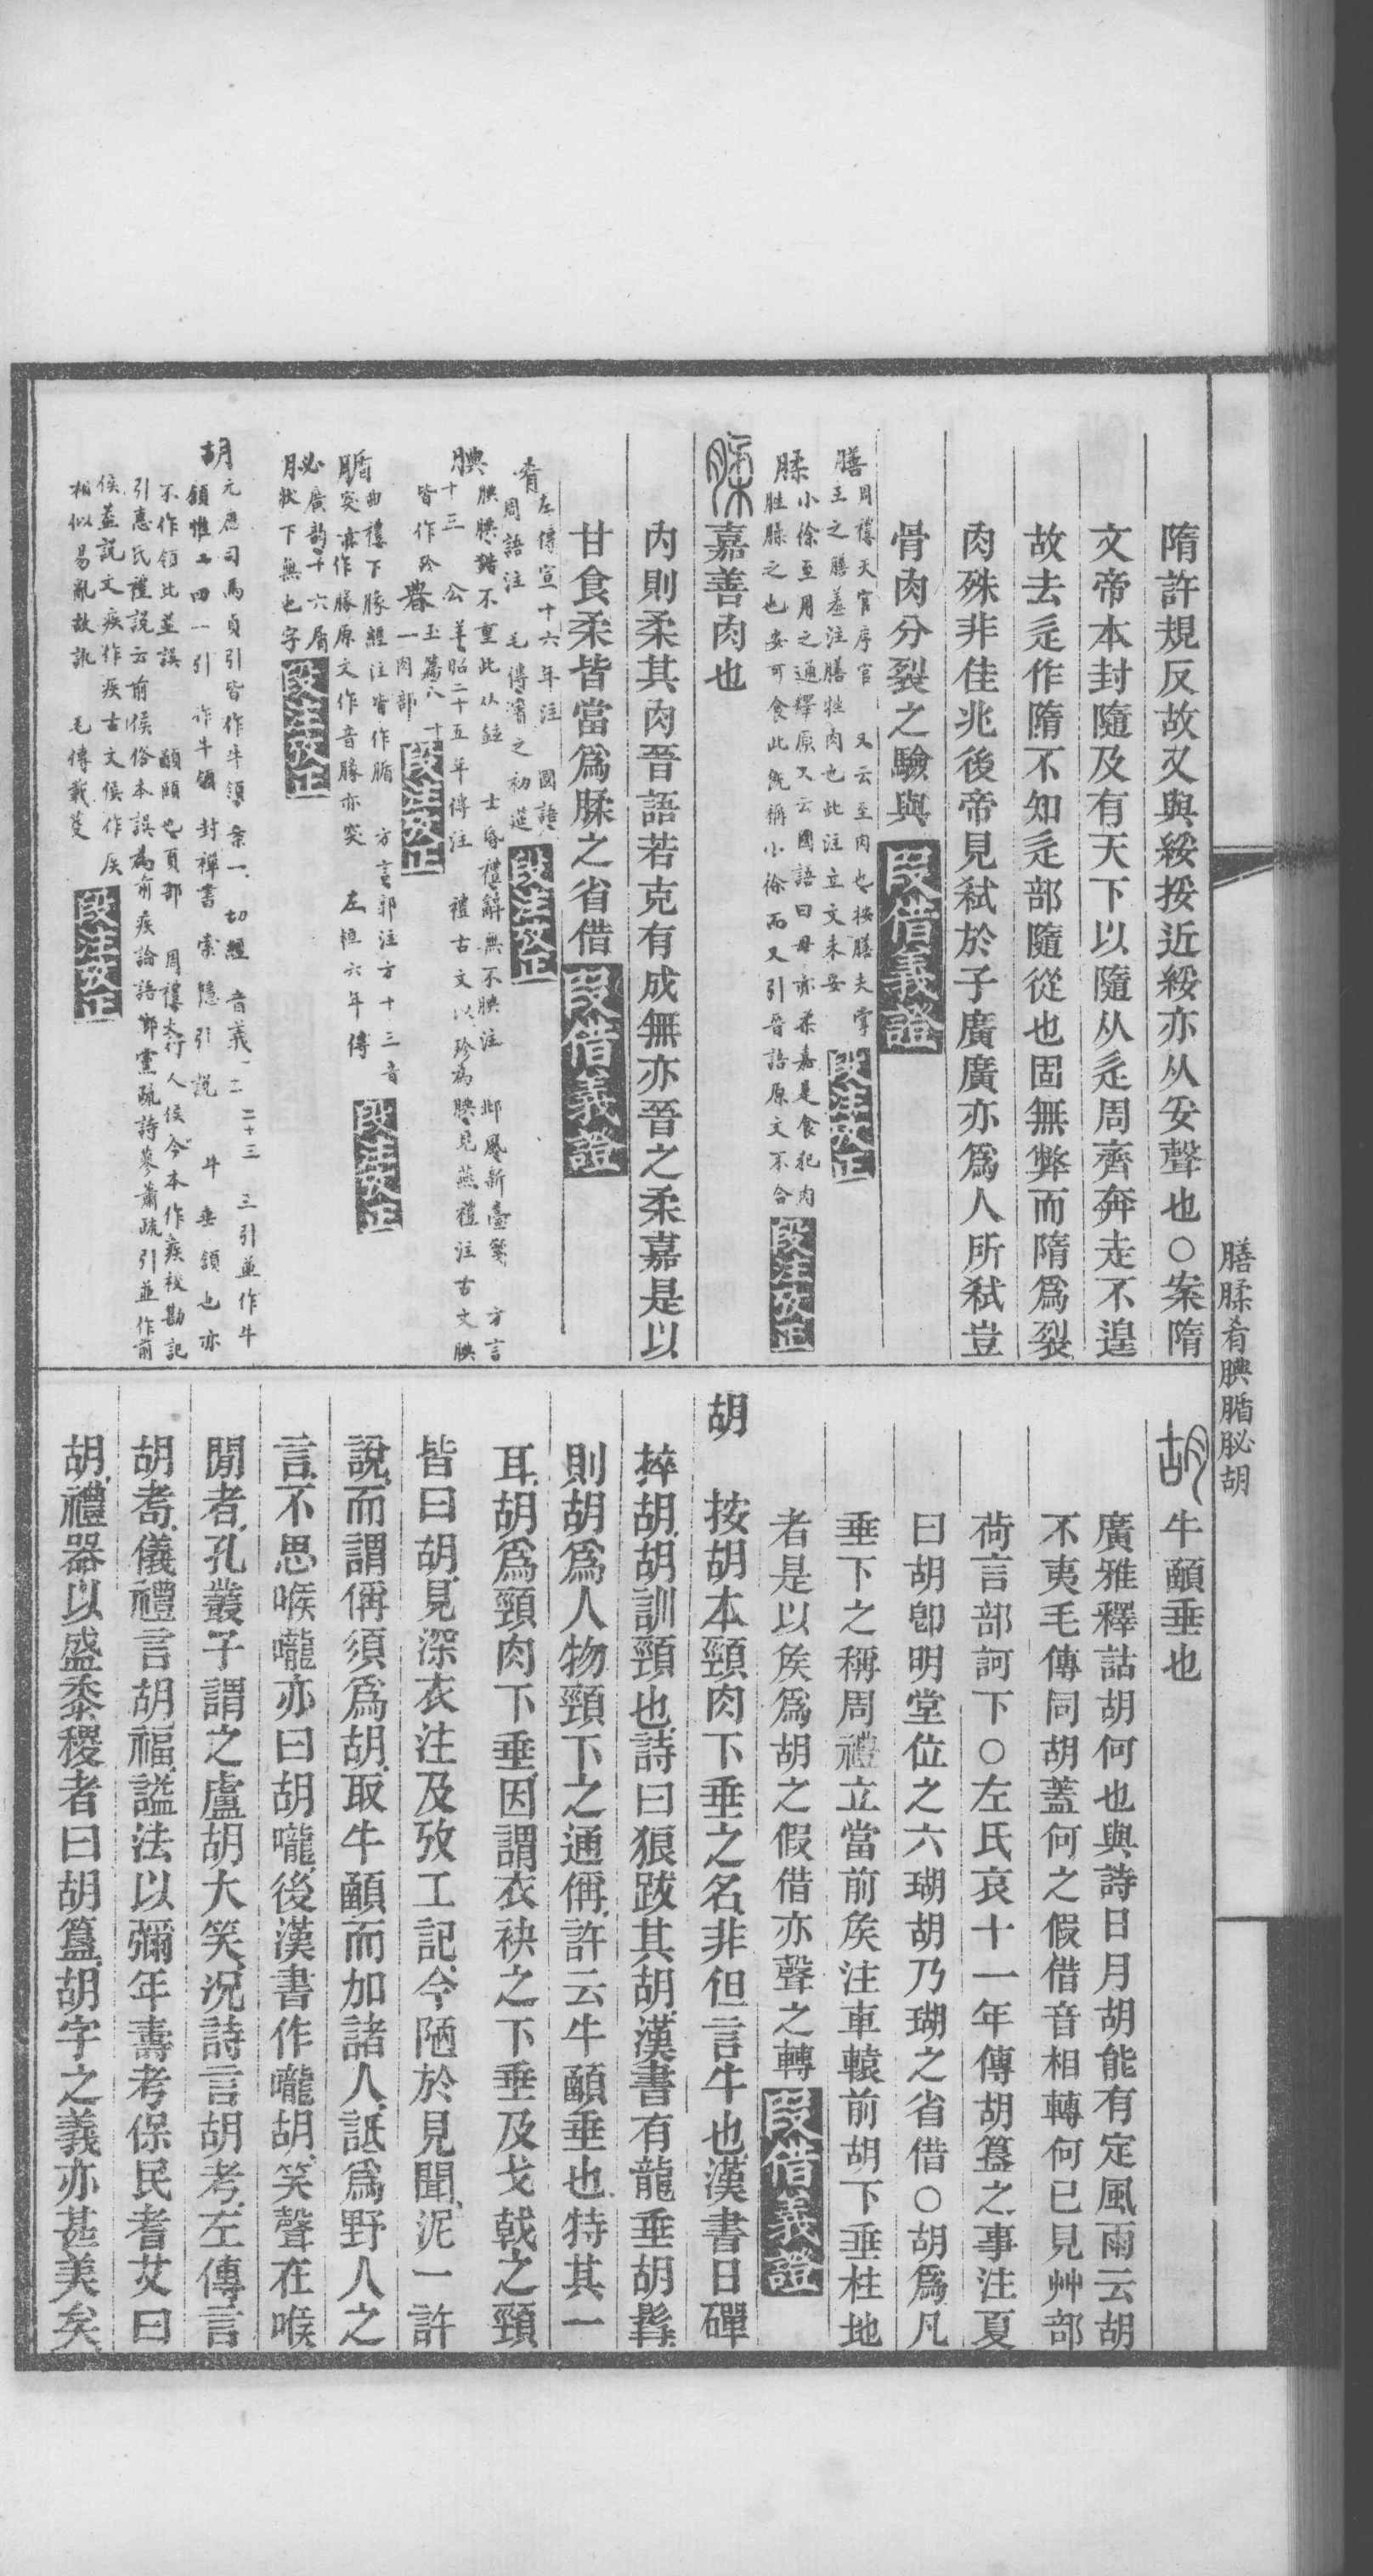 隋許規反故又與綏挼近綏亦从妥聲也○案隋
文帝本封隨及有天下以隨从辵周齊奔走不遑
故去辵作隋不知辵部隨從也固無弊而隋爲裂
肉殊非佳兆後帝見弒於子廣廣亦爲人所弒豈
骨肉分裂之驗與 段借義證
膳 周禮天官序官 又云至肉也按膳夫掌
王之膳羞注膳牲肉也此注立文未妥 段注攷正
腬 小徐至用之通釋原文云國語曰毋亦柔嘉是食祀肉
胜腬之也安可食此旣稱小徐而又引晉語原文不合 段注攷正
腬 嘉善肉也
內則柔其肉晉語若克有成無亦晉之柔嘉是以
甘食柔皆當爲腬之省借 段借義證
肴 左傳宣十六年注 國語
周語注 毛傳賓之初筵 段注攷正
腆 腆腆猶不重此从鉉 士昏禮辭無不腆注 邶風新臺箋 方言
十三 公羊昭二十五年傳注 禮古文以珍爲腆見燕禮注古文腆
皆作珍 玉篇八十
一肉部 段注攷正
腯 曲禮下豚經注皆作腯 方言郭注方十三音
突亦作腞原文作音腞亦突 左桓六年傳 段注攷正
肶 廣韵十六屑
狀下無也字 段注攷正
胡 元應司馬貞引皆作牛頷案一切經音義一二 二十三 三引並作牛
頷惟二四一引作牛領 封禪書索隱引說 牛垂頷也亦
不作領比並誤 顄頤也頁部 周禮大行人侯今本作疾校勘記
引惠氏禮說云前侯俗本誤爲前疾論語鄉黨疏詩蓼蕭疏引並作前
侯蓋說文疾作疾古文侯作㑨
相似易亂故訛 毛傳載芟 段注攷正
膳腬肴腆腯肶胡
胡 牛顄垂也
廣雅釋詁胡何也與詩日月胡能有定風雨云胡
不夷毛傳同胡蓋何之假借音相轉何已見艸部
荷言部訶下○左氏哀十一年傳胡簋之事注夏
曰胡卽明堂位之六瑚胡乃瑚之省借○胡爲凡
垂下之稱周禮立當前矦注車轅前胡下垂柱地
者是以矦爲胡之假借亦聲之轉 段借義證
胡 按胡本頸肉下垂之名非但言牛也漢書日磾
捽胡胡訓頸也詩曰狼跋其胡漢書有龍垂胡髯
則胡爲人物頸下之通偁許云牛顄垂也特其一
耳胡爲頸肉下垂因謂衣袂之下垂及戈戟之頸
皆曰胡見深衣注及攷工記今陋於見聞泥一許
說而謂偁須爲胡取牛顄而加諸人詆爲野人之
言不思喉嚨亦曰胡嚨後漢書作嚨胡笑聲在喉
閒者孔叢子謂之盧胡大笑況詩言胡考左傳言
胡耇儀禮言胡福謚法以彌年壽考保民耆艾曰
胡禮器以盛黍稷者曰胡簋胡字之義亦甚美矣